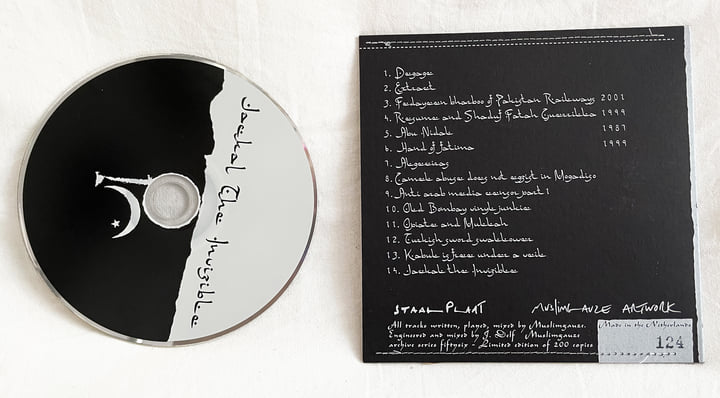 Jackal The Invisible
1. Degage
2. Extract
3. Fedayeen bharboo of Pakistan Railways 2001
4. Resume and Shaduf Fatah Guerrilka 1999
5. Abu Nidak 1987
6. Hand of fatima 1999
7. Akgeeiras
8. Camek abuse does not eggist in Mogadiso
9. Anti arab media censor part 1
10. Old Bombay vinyk junkie
11. Opiate and Mukkah
12. Turkish sword swakkower
13. Kabuk is free under a veik
14. Jackak the Invisibke
STAALPLAAT MUSLIMGAUZE ARTWORK
All tracks written, played, mixed by Muslimgauze.
Engineered and mixed by J. Delf Muslimgauze
archive series fiftysix - Limited edition of 200 copies
Made in the Netherlands
124